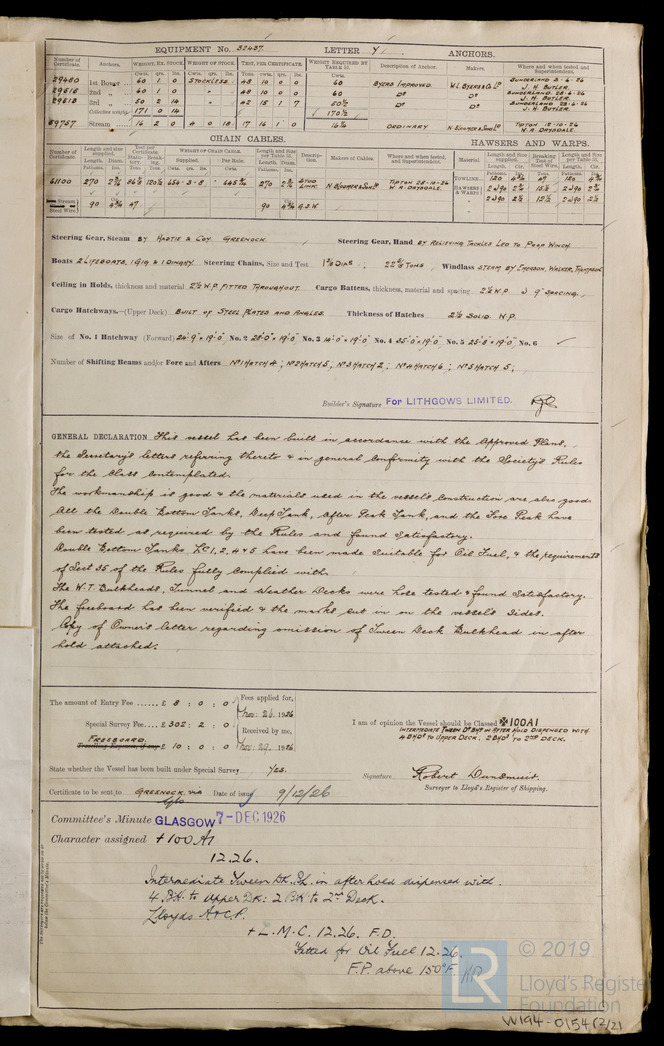 EQUIPMENT No. 32437. LETTER Y ANCHORS.
Number of Certificate. Anchors. WEIGHT, EX. STOCK. WEIGHT OF STOCK. TEST, PER CERTIFICATE. WEIGHT REQUIRED BY TABLE 31. Description of Anchor. Makers. Where and when tested and Superintendent.
Cwts. qrs. lbs. Cwts. qrs. lbs. Tons. cwts. qrs. lbs. Cwts.
29480 1st Bower 60 1 0 STOCKLESS 48 10 0 0 60 BYERS IMPROVED. W.L. BYERS & Co. Ld SUNDERLAND J. H. BUTLER.
29515 2nd " 60 1 0 " 48 10 0 0 60 Do Do SUNDERLAND J. H. BUTLER.
29518 3rd " 50 2 14 " 42 15 1 7 50½ Do Do SUNDERLAND J. H. BUTLER.
Collective weight 171 0 14 170½
59757 Stream 16 2 0 4 0 18 17 16 1 0 16¼ ORDINARY N. BLOOMER & SONS Ld TIPTON 18-10-26 W. A. DRYSDALE.
CHAIN CABLES. HAWSERS AND WARPS.
Number of Certificate. Length and size supplied. Test per Certificate. WEIGHT OF CHAIN CABLE. Length and Size per Table 31. Description. Makers of Cables. Where and when tested, and Superintendent. Material Length and Size supplied. Breaking Test of Steel Wire. Length and Size per Table 31.
61100 270 STUD LINK. N. BLOOMER & SONS Ld TIPTON 28-10-26 W. A. DRYSDALE. TOWLINE 120 47 120
HAWSERS & WARPS
Stream Steel Wire 90 47 90 G.S.W.
Steering Gear, Steam BY HASTIE & COY. GREENOCK. Steering Gear, Hand BY RELIEVING TACKLES LED TO POOP WINCH.
Boats 2 LIFEBOATS, 1 GIG & 1 DINGHY. Steering Chains, Size and Test 1⅜ DIAS; TONS Windlass STEAM BY EMERSON, WALKER, THOMPSON
Ceiling in Holds, thickness and material 2½ W.P. FITTED THROUGHOUT. Cargo Battens, thickness, material and spacing 2½ W.P. 9" SPACING.
Cargo Hatchways.—(Upper Deck) BUILT OF STEEL PLATES AND ANGLES. Thickness of Hatches 2½ SOLID W.P.
Size of No. 1 Hatchway (Forward) 24'-9" × 19'-0" No. 2 28'-0" × 19'-0" No. 3 14'-0" × 19'-0" No. 4 35'-0" × 19'-0" No. 5 25'-8" × 19'-0" No. 6
Number of Shifting Beams and/or Fore and Afters No 1 HATCH 4; No 2 HATCH 5, No 3 HATCH 2; No 4 HATCH 6; No 5 HATCH 5;
Builder's Signature For LITHGOWS LIMITED.
GENERAL DECLARATION This vessel has been built in accordance with the Approved Plans,
the Secretary's letters referring thereto & in general conformity with the Society's Rules
for the Class contemplated.
The workmanship is good & the materials used in the vessel's construction are also good.
All the Double Bottom Tanks, Deep Tank, After Peak Tank, and the Fore Peak have
been tested as required by the Rules and found satisfactory.
Double Bottom Tanks No 1, 2, 4 & 5 have been made suitable for Oil Fuel, & the requirements
of Sect 35 of the Rules fully complied with.
The W.T. Bulkheads, Tunnel and Weather Decks were hose tested & found satisfactory.
The freeboard has been verified & the marks cut in on the vessel's sides.
Copy of Owner's letter regarding omission of Tween Deck Bulkhead in after
hold attached.
The amount of Entry Fee ...... £ 8 : 0 : 0 Fees applied for,
Nov. 26. 1926
Special Survey Fee.... £ 302 : 2 : 0 Received by me,
FREEBOARD £ 10 : 0 : 0 Nov. 29. 1926
I am of opinion the Vessel should be Classed ✠100A1
INTERMEDIATE TWEEN DK BHD IN AFTER HOLD DISPENSED WITH
4 BHDS TO UPPER DECK: 2 BHDS TO 2ND DECK.
State whether the Vessel has been built under Special Survey Yes.
Signature Robert Dunsmuir.
Surveyor to Lloyd's Register of Shipping.
Certificate to be sent to GREENOCK via Gls Date of issue 9/12/26
Committee's Minute GLASGOW 7-DEC 1926
Character assigned +100A1
12.26.
Intermediate Tween Dk. Bh. in after hold dispensed with.
4 BH. to Upper Dk: 2 BH to 2nd Deck.
Lloyds A & C.P.
+ L.M.C. 12.26. F.D.
Fitted for Oil Fuel 12.26.
F.P. above 150°F.
LR
© 2019
Lloyd's Register
Foundation
W194-0154 (2/2)